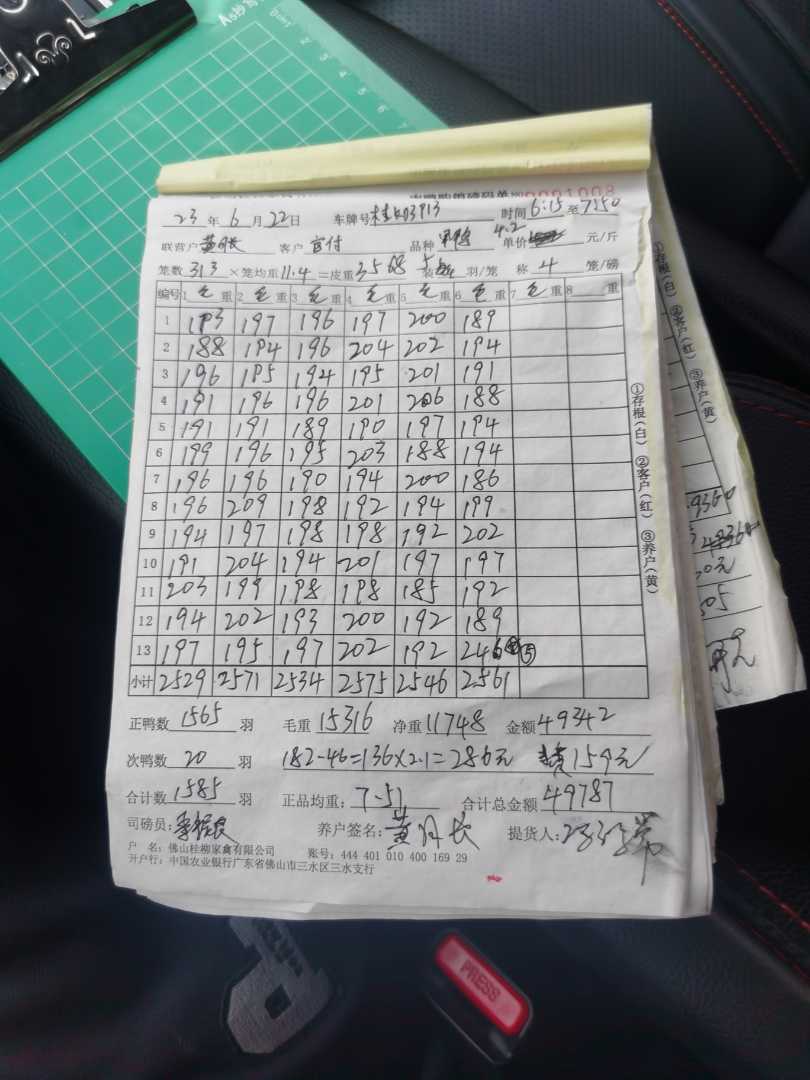 0001008
23 年 6 月 22 日 车牌号 时间 6:15 至 7:50
联营户 黄月长 客户 品种 4.2 单价 元/斤
笼数 313 ×笼均重 11.4 =皮重 3568 装 5 羽/笼 称 4 笼/磅
编号 1 毛 重 2 毛 重 3 毛 重 4 毛 重 5 毛 重 6 毛 重 7 毛 重 8 重
1 193 197 196 197 200 189
2 188 194 196 204 202 194
3 196 195 194 195 201 191
4 191 196 196 201 206 188
5 191 191 189 190 197 194
6 199 196 195 203 188 194
7 196 196 190 194 200 186
8 196 209 198 192 194 199
9 194 197 198 198 192 202
10 191 204 194 201 197 197
11 203 199 198 198 185 192
12 194 202 193 200 192 189
13 197 195 197 202 192 246 ⑤
小计 2529 2571 2534 2575 2546 2561
正鸭数 1565 羽 毛重 15316 净重 11748 金额 49342
次鸭数 20 羽 182-46=136×2.1=286元 159元
合计数 1585 羽 正品均重: 7-51 合计总金额 49787
司磅员: 养户签名: 黄月长 提货人:
户 名: 佛山桂柳家禽有限公司 账号: 444 401 010 400 169 29
开户行: 中国农业银行广东省佛山市三水区三水支行
①存根(白) ②客户(红) ③养户(黄)
①存根(白) ②客户(红) ③养户(黄)
PRESS